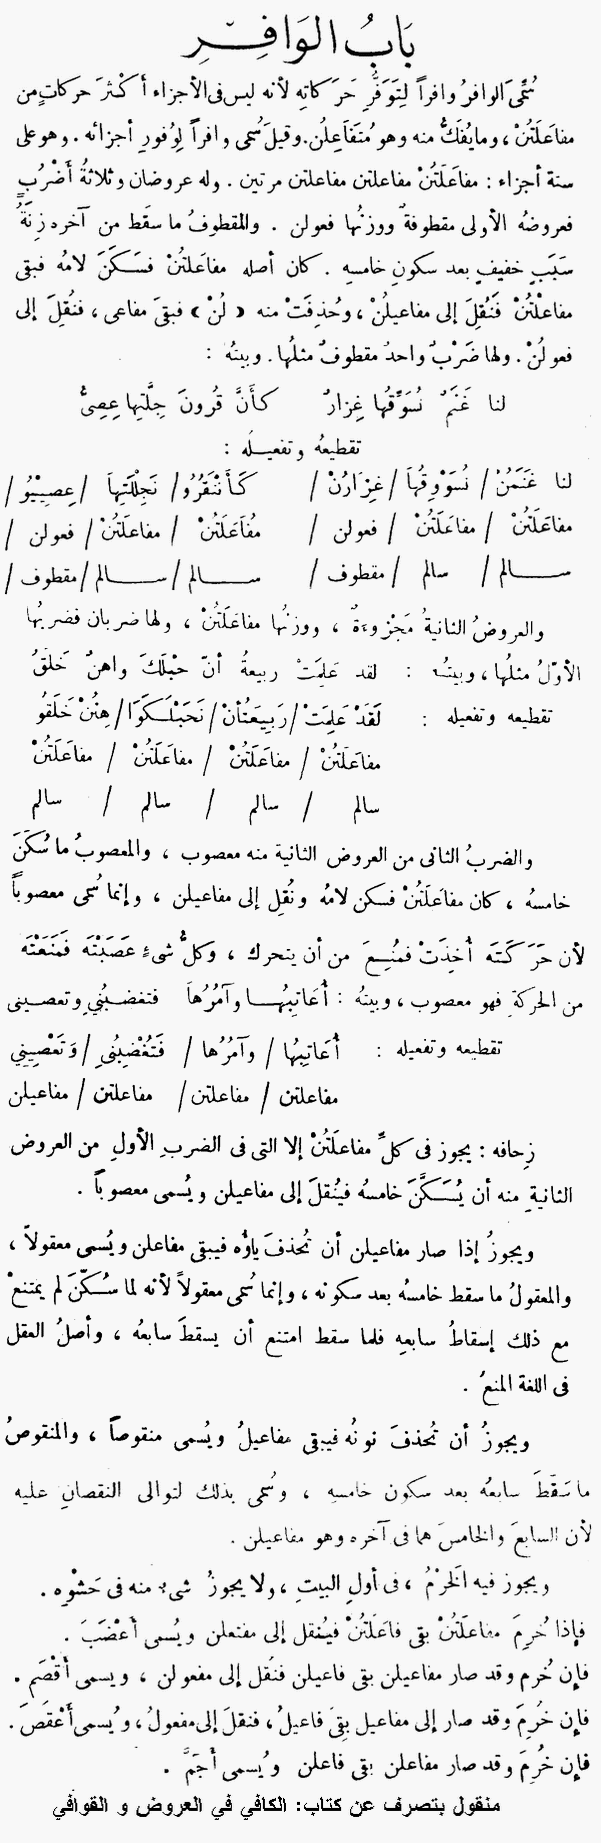 بَابُ الوَافِرِ
سُمِّىَ الوافرُ وافراً لِتَوَفُّرِ حَرَكاتِه لأنه ليس فى الأجزاء أكثرَ حركاتٍ من
مفاعَلَتُنْ ، ومايُفَكُّ منه وهو مُتَفاعِلُن. وقيلَ سُمى وافراً لِوُفورِ أجزائه . وهو على
ستة أجزاء : مفاعَلَتُنْ مفاعلتن مفاعلتن مرتين . وله عروضان وثلاثةُ أَضْرُبٍ
فعروضُه الأولى مقطوفةٌ ووزنُها فعولن . والمقطوفُ ما سقَط من آخره زِنَةُ
سَبَبٍ خفيفٍ بعد سكونِ خامسِهِ . كان أصله مفاعَلَتُنْ فسَكَنَ لامُه فبقى
مفاعلْتُنْ فَنُقِلَ إلى مفاعيلُنْ ، وحُذِفَتْ منه « لُنْ » فبقىَ مفاعى ، فنُقِلَ إلى
فعولُنْ . ولها ضَرْبٌ واحدٌ مقطوفٌ مثلُها . وبيتُه :
لنا غَنَمٌ نُسَوِّقُها غِزارٌ كأَنَّ قُرونَ جِلَّتِها عِصِىُّ
تقطيعُه وتفعيلُه :
لنا غَنَمُنْ / نُسَوْوِقُهَا / غِزَارُنْ / كَأَنْنَقُرُو / نَجِلْلَتِهَا / عِصِيْيُو /
مفاعَلَتُنْ / مفاعَلَتُنْ / فعولن / مُفَاعَلَتُنْ / مفاعَلَتُنْ / فعولن /
سالم / سالم / مقطوف / سالم / سالم / مقطوف /
والعروضُ الثانيةُ مَجْزُوءةٌ ، ووزنُها مفاعَلَتُنْ ، ولها ضربان فضربُها
الأوّلُ مثلُها ، وبيتُه : لقد عَلِمَتْ ربيعةُ أنّ حبْلَكَ واهنٌ خَلَقُ
تقطيعه وتفعيله : لَقَدْ عَلِمَتْ / رَبِيعَتُأَنْ / نَحَبْلَكَوَا / هِنُنْ خَلَقُو
مفاعَلَتُنْ / مفاعَلَتُنْ / مفاعَلَتُنْ / مفاعَلَتُنْ
سالم / سالم / سالم / سالم
والضربُ الثانى من العروض الثانية منه معصوب ، والمعصوبُ ما سُكِّنَ
خامسُه ، كان مفاعَلَتُنْ فسكن لامُه ونُقِل إلى مفاعيلن ، وإنما سُمى معصوباً
لأن حَرَكَتَه أُخِذَتْ فمُنِعَ من أن يتحرك ، وكلُّ شىءٍ عَصَبْتَه فَمَنَعْتَه
من الحركةِ فهو معصوب ، وبيتُه : أُعاتِبُها وآمُرُها فتغضبُنى وتعصينى
تقطيعه وتفعيله : أُعَاتِبُها / وآمُرُها / فَتُغْضِبُنِى / وَتَعْصِينِي
مفاعلتن / مفاعلتن / مفاعلتن / مفاعيلن
زِحافه : يجوز فى كلِّ مفاعلَتُنْ إلا التى فى الضربِ الأولِ من العروض
الثانيةِ منه أن يُسَكَّنَ خامسُه فيُنقلَ إلى مفاعيلن ويُسمى معصوباً .
ويجوزُ إذا صار مفاعيلن أن تُحذفَ ياؤه فيبقى مفاعلن ويُسمى معقولاً ،
والمعقولُ ما سقط خامسُه بعد سكونه ، وإنما سُمى معقولاً لأنه لما سُكّنَ لم يمتنعْ
مع ذلك إسقاطُ سابعِه فلما سقط امتنع أن يسقطَ سابعُه ، وأصلُ العقل
فى اللغة المنعُ .
ويجوزُ أن تُحذفَ نونُه فيبقى مفاعيلُ ويُسمى منقوصاً ، والمنقوصُ
ما سَقَطَ سابعُه بعد سكون خامسه ، وسُمى بذلك لتوالى النقصانِ عليه
لأن السابعَ والخامسَ هما فى آخره وهو مفاعيلن .
ويجوز فيه الخَرْمُ ، فى أولِ البيتِ ، ولا يجوزُ شىءٌ منه فى حَشْوِه .
فإذا خُرِمَ مفاعلَتُنْ بقى فاعَلَتُنْ فيُنقل إلى مفتعلن ويُسمى أعْضَبَ .
فإن خُرم وقد صار مفاعيلن بقى فاعيلن فنُقل إلى مفعولن ، ويسمى أقْصَم .
فإن خُرِمَ وقد صار إلى مفاعيل بقِىَ فاعيلُ ، فنقلَ إلى مفعولُ ، ويُسمى أَعْقَصَ .
فإن خُرِمَ وقد صار مفاعلن بقى فاعلن ويُسمى أجَمَّ .
منقول بتصرف عن كتاب: الكافي في العروض و القوافي